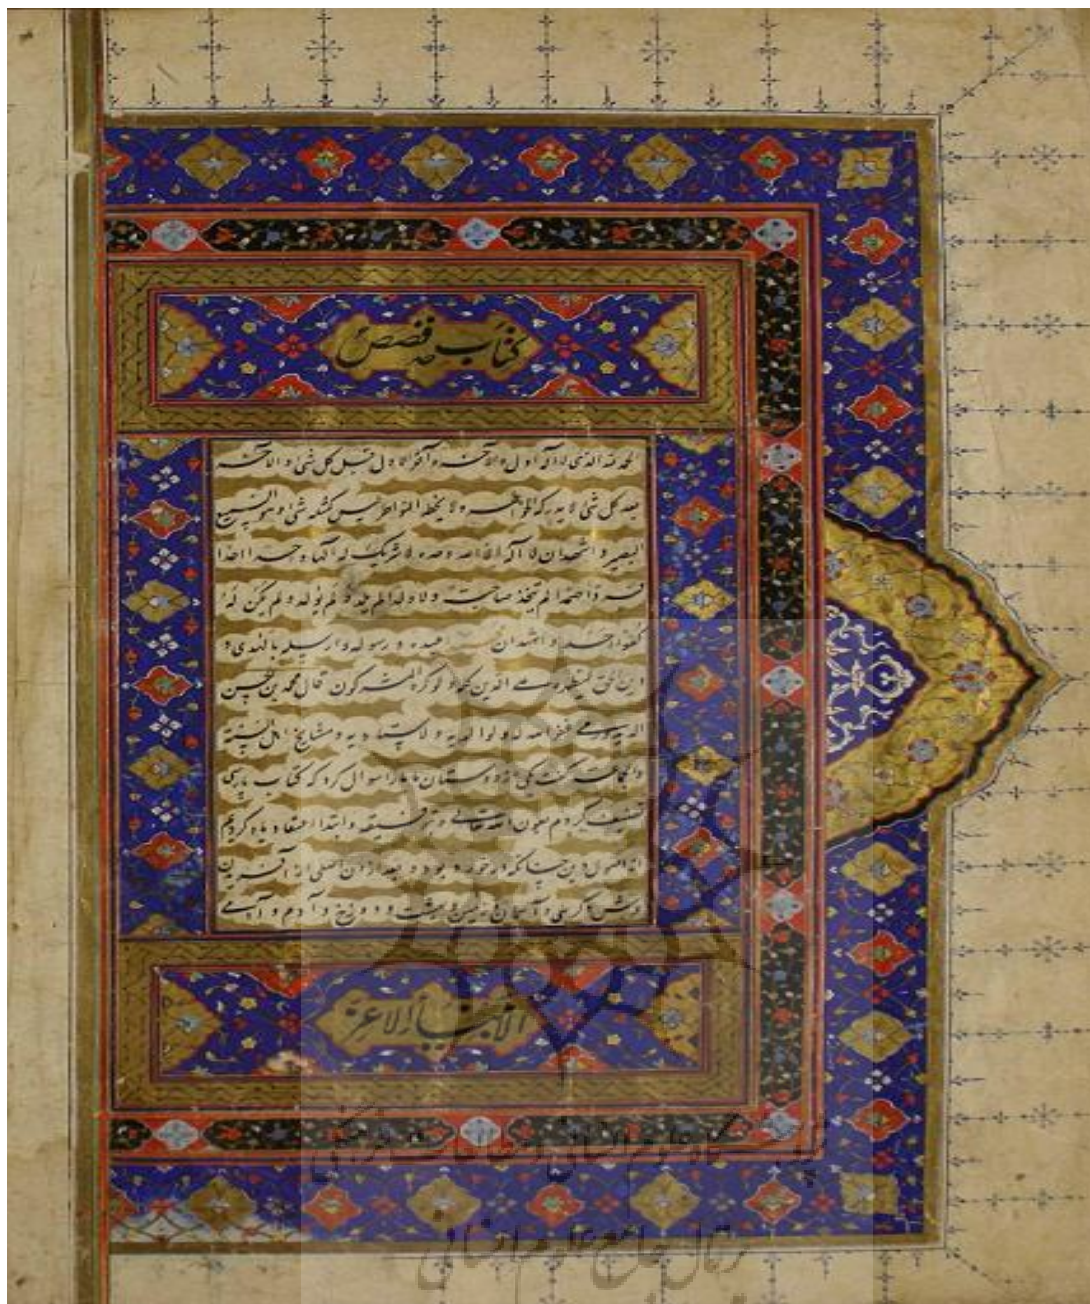 کتاب قصص
الحمد لله الذی لا اله اول و الآخره و آخر الاول قبل کل شئ و الآخر
بعد کل شئ لا یدرکه الظواهر و لا یخطه الخواطر لیس کمثله شئ و هو السمیع
البصیر و اشهد ان لا اله الا الله وحده لا شریک له الها واحدا احدا
فردا صمدا لم یتخذ صاحبة و لا ولدا لم یلد و لم یولد و لم یکن له
کفوا احد و اشهد ان عبده و رسوله و ارسله بالهدی و
دین الحق لیظهره علی الدین کله و لو کره المشرکون قال محمد بن حسن
غفر الله له و لوالدیه و لاستادیه و مشایخ اهل السنة
والجماعت گفت که دوستان ما را سوال کرد که کتاب پارسی
تصنیف کردم بعون الله تعالی و توفیقه و ابتدا اعتقاد یاد کردیم
از اصول دین چنانکه در خور بود و بعد از آن فصلی از آفرین
عرش و کرسی و آسمان و زمین و بهشت و دوزخ و آدم و
الانبیاء الاعز
پژوهشگاه علوم انسانی و مطالعات فرهنگی
پرتال جامع علوم انسانی